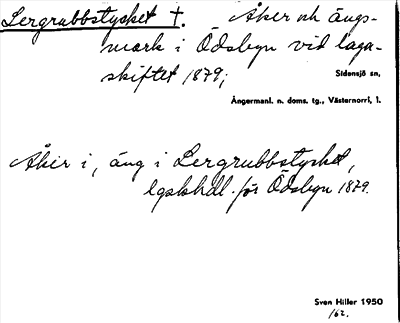 Lergrubbstycket †. Åker och ängs-
mark i Ödsbyn vid laga-
skiftet 1879;
Sidensjö sn,
Ångermanl. n. doms. tg., Västernorrl, l.
Åker i, äng i Lergrubbstycket,
lgskhdl. för Ödsbyn 1879.
Sven Hiller 1950
/62.